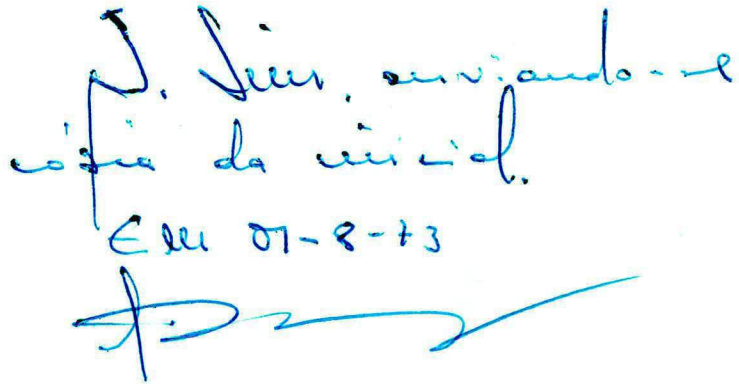 J. Sim, enviando-se
cópia da inicial.
Em 01-8-73